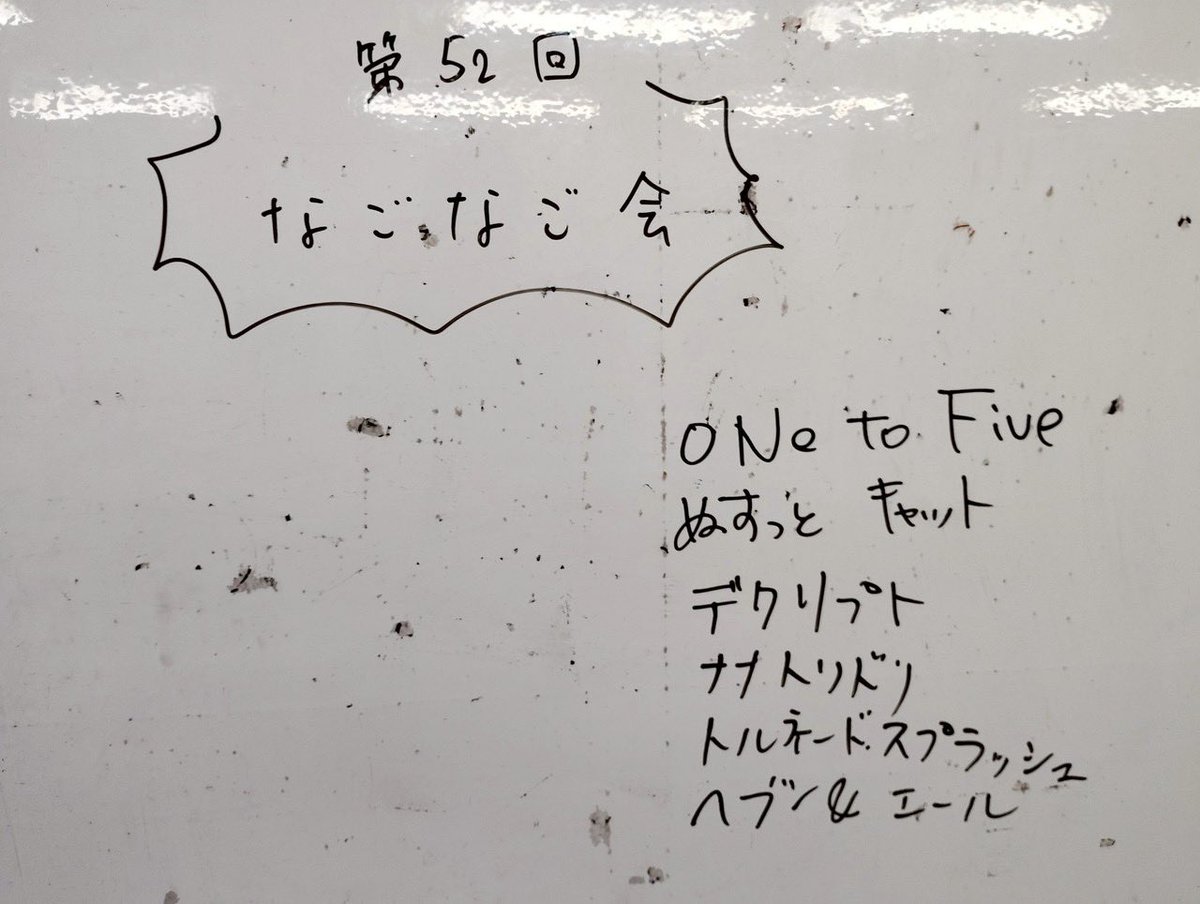 第52回
なごなご会
ONe to Five
ぬすっと キャット
デクリプト
ナナトリドリ
トルネードスプラッシュ
ヘブン& エール